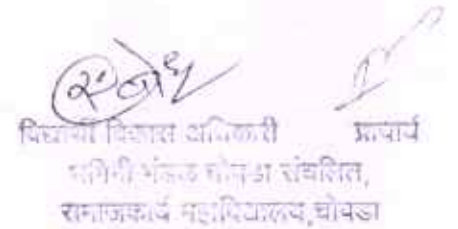 विद्यार्थी विकास अधिकारी प्राचार्य
भगिनी मंडळ चोपडा संचलित,
समाजकार्य महाविद्यालय,चोपडा